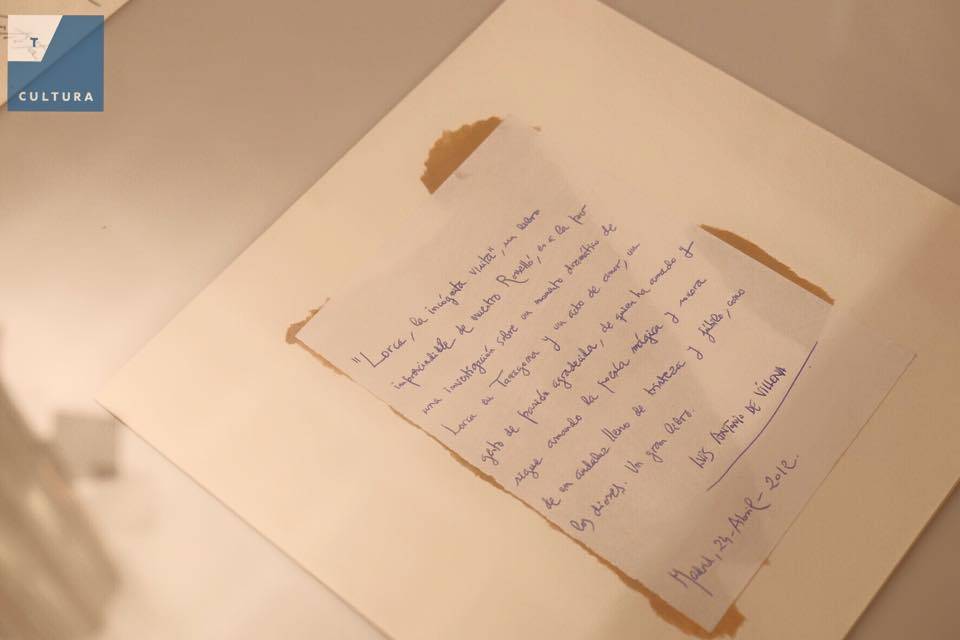 T
CULTURA
"Lorca, la incógnita visita", un libro
imprescindible de nuestro Rosselló, es a la par
una investigación sobre un momento dramático de
Lorca en Tarragona y un acto de amor, un
gesto de pasión agradecida, de quien ha amado y
sigue amando la poesía mágica y sonora
de un andaluz lleno de tristeza y júbilo, como
los dioses. Un gran libro.
LUIS ANTONIO DE VILLENA
Madrid, 24-Abril-2012.